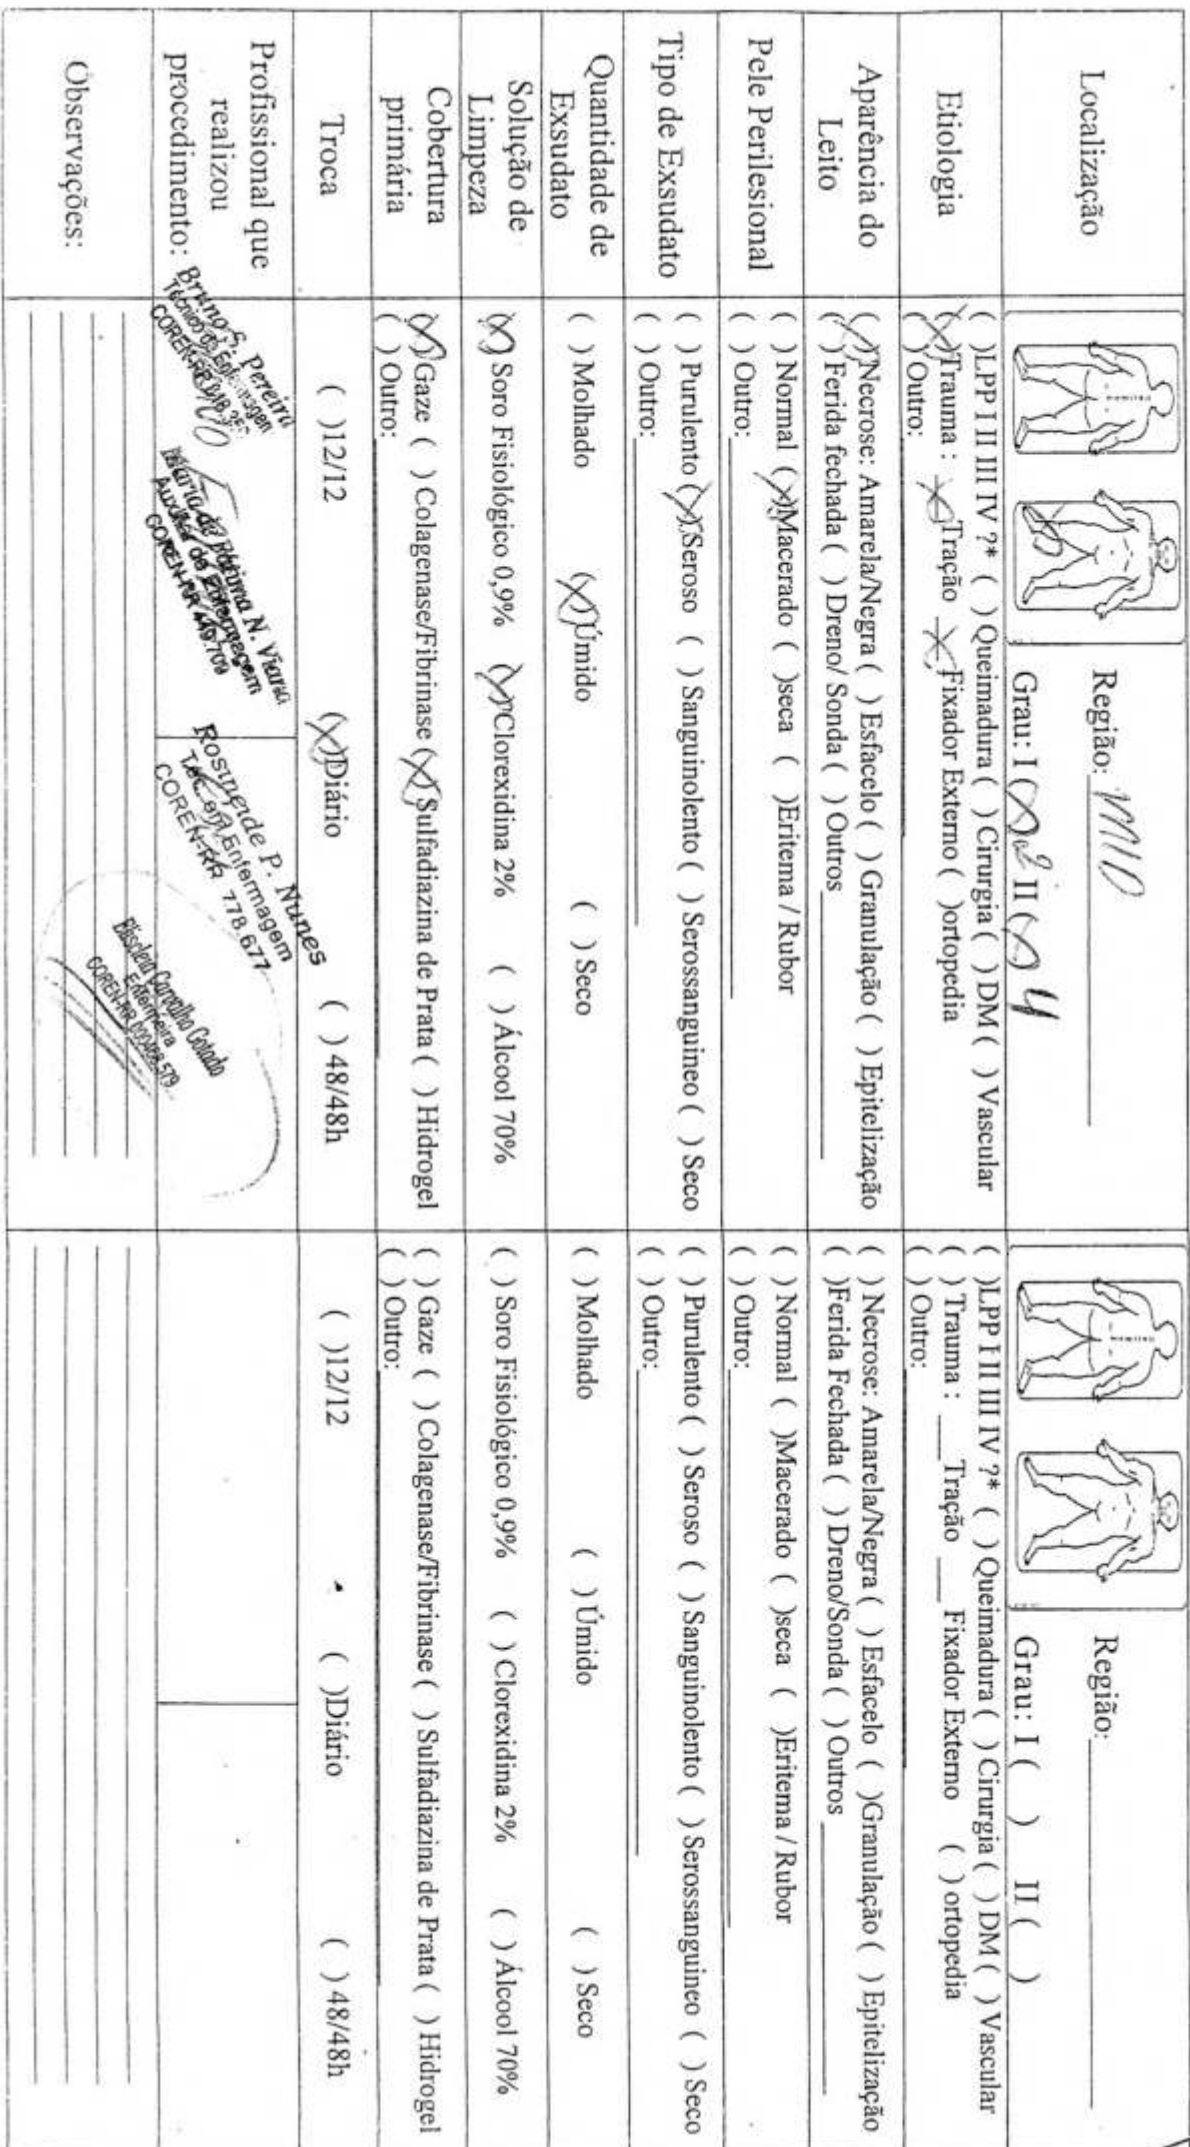 Localização
Região: MID
Grau: I (X) 2 II (X) 4
Região:
Grau: I ( ) II ( )
Etiologia
( )LPP I II III IV ?* ( ) Queimadura ( ) Cirurgia ( ) DM ( ) Vascular
(X)Trauma : X Tração X Fixador Externo ( )ortopedia
( ) Outro:
( )LPP I II III IV ?* ( ) Queimadura ( ) Cirurgia ( ) DM ( ) Vascular
( ) Trauma : ___ Tração ___ Fixador Externo ( ) ortopedia
( ) Outro:
Aparência do
Leito
(X)Necrose: Amarela/Negra ( ) Esfacelo ( ) Granulação ( ) Epitelização
( ) Ferida fechada ( ) Dreno/ Sonda ( ) Outros
( ) Necrose: Amarela/Negra ( ) Esfacelo ( )Granulação ( ) Epitelização
( )Ferida Fechada ( ) Dreno/Sonda ( ) Outros
Pele Perilesional
( ) Normal (X)Macerado ( )seca ( )Eritema / Rubor
( ) Outro:
( ) Normal ( )Macerado ( )seca ( )Eritema / Rubor
( ) Outro:
Tipo de Exsudato
( ) Purulento (X)Seroso ( ) Sanguinolento ( ) Serossanguineo ( ) Seco
( ) Outro:
( ) Purulento ( ) Seroso ( ) Sanguinolento ( ) Serossanguineo ( ) Seco
( ) Outro:
Quantidade de
Exsudato
( ) Molhado (X)Úmido ( ) Seco
( ) Molhado ( ) Úmido ( ) Seco
Solução de
Limpeza
(X) Soro Fisiológico 0,9% (X)Clorexidina 2% ( ) Álcool 70%
( ) Soro Fisiológico 0,9% ( ) Clorexidina 2% ( ) Álcool 70%
Cobertura
primária
(X)Gaze ( ) Colagenase/Fibrinase (X) Sulfadiazina de Prata ( ) Hidrogel
( ) Outro:
( ) Gaze ( ) Colagenase/Fibrinase ( ) Sulfadiazina de Prata ( ) Hidrogel
( ) Outro:
Troca
( )12/12 (X)Diário ( ) 48/48h
( )12/12 ( )Diário ( ) 48/48h
Profissional que
realizou
procedimento:
Bruno S. Pereira
Técnico de Enfermagem
COREN-RR
Maria de Fátima N. Viana
Auxiliar de Enfermagem
COREN-RR 449.709
Rosineide P. Nunes
Téc. em Enfermagem
COREN-RR 778.677
Carvalho
Enfermeira
COREN-RR
Observações: